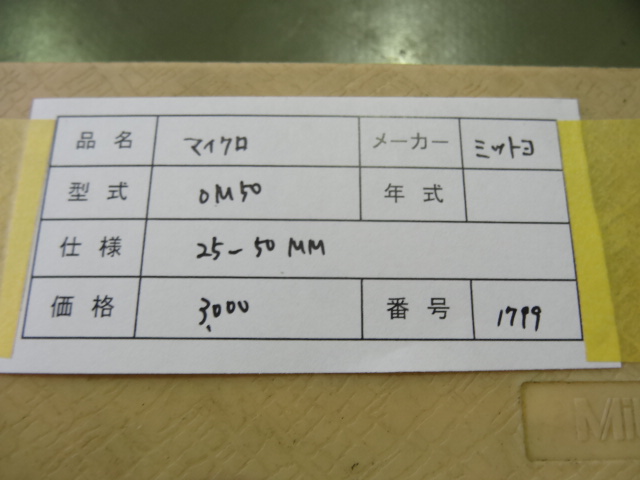 品名 マイクロ メーカー ミツトヨ
型式 OM50 年式
仕様 25-50 MM
価格 3,000 番号 1799
Mi